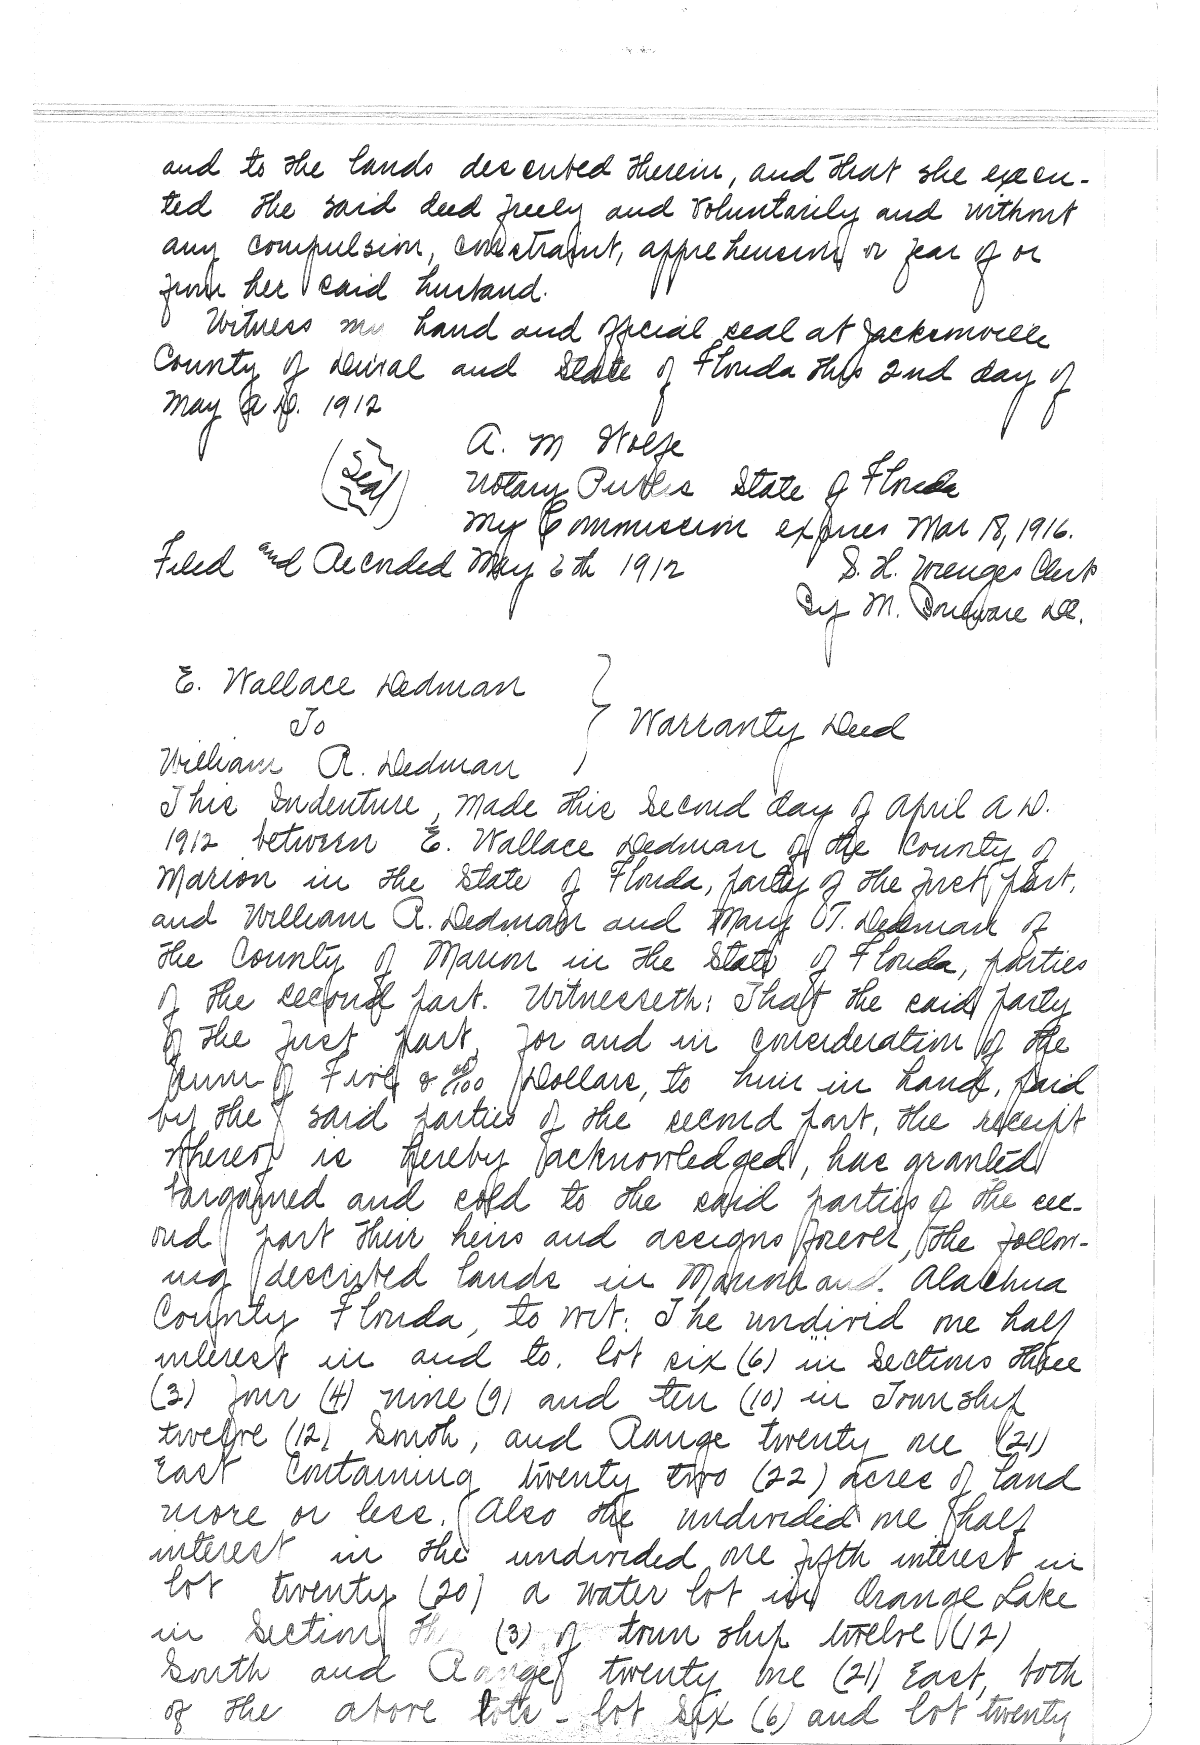 and to the lands described therein, and that she execu-
ted the said deed freely and voluntarily and without
any compulsion, constraint, apprehension or fear of or
from her said husband.
Witness my hand and official seal at Jacksonville
County of Duval and State of Florida this 2nd day of
May A.D. 1912
A. M Wolfe
(Seal)
Notary Public State of Florida
My Commission expires Mar 18, 1916.
Filed and Recorded May 6th 1912
S. H. Clerk
By M. D.C.
E. Wallace Dedman
To
Warranty Deed
William R. Dedman
This Indenture, Made this Second day of April A D.
1912 between E. Wallace Dedman of the County of
Marion in the State of Florida, party of the first part,
and William R. Dedman and Mary T. Dedman of
the County of Marion in the State of Florida, parties
of the second part. Witnesseth: That the said party
of the first part, for and in consideration of the
sum of Five & 00/100 Dollars, to him in hand, paid
by the said parties of the second part, the receipt
whereof is hereby acknowledged, has granted
bargained and sold to the said parties of the sec-
ond part their heirs and assigns forever, the follow-
ing described lands in Marion and Alachua
County Florida, to wit: The undivid one half
interest in and to. lot six (6) in Sections three
(3) four (4) nine (9) and ten (10) in Township
twelve (12) South, and Range twenty one (21)
East Containing twenty two (22) acres of land
more or less. Also the undivided one half
interest in the undivided one fifth interest in
lot twenty (20) a water lot in Orange Lake
in Section (3) of town ship twelve (12)
South and Range twenty one (21) East, both
of the above lots - lot six (6) and lot twenty